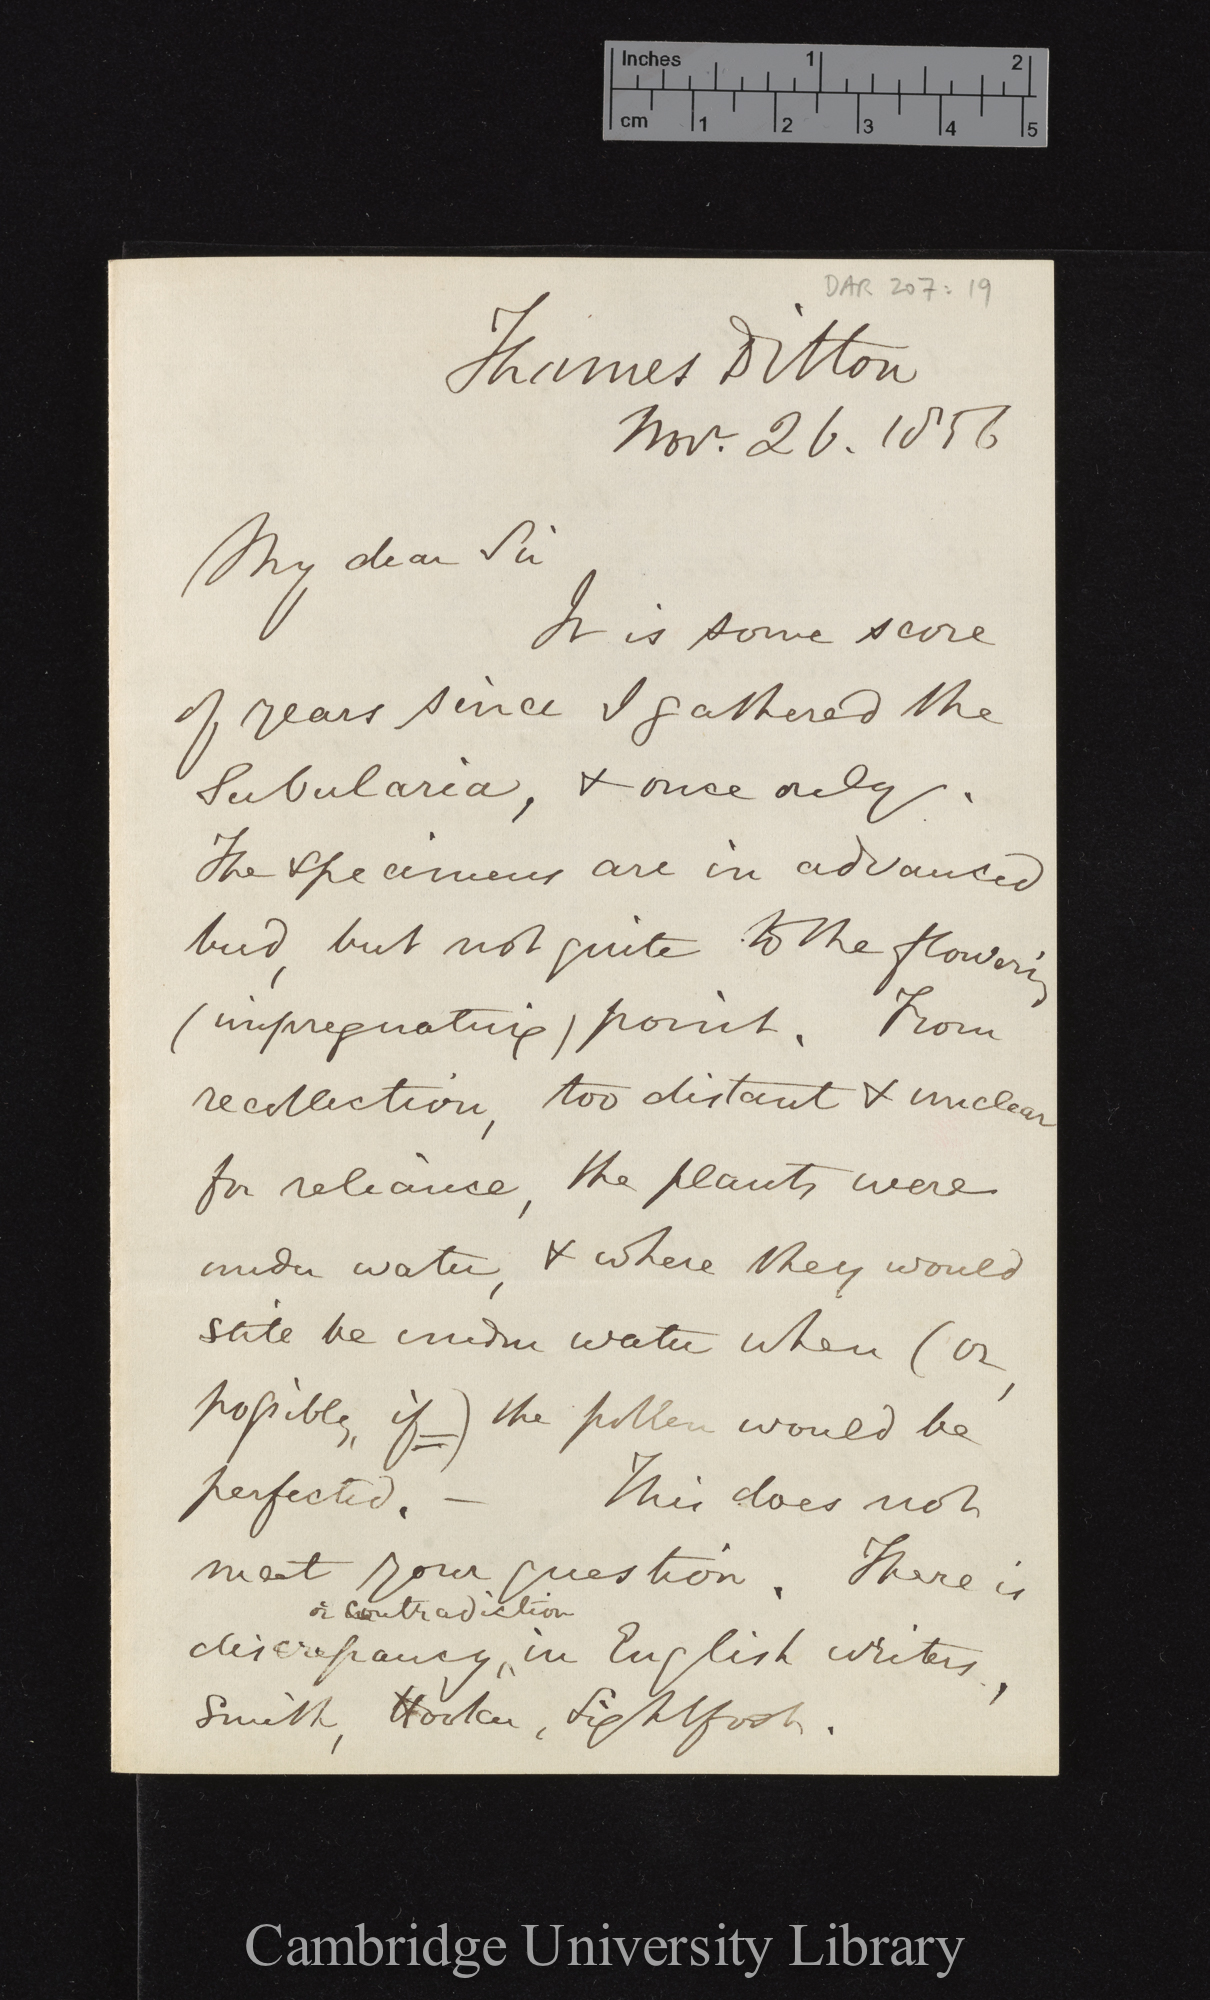 Inches 1 2
cm 1 2 3 4 5
DAR 207: 19
Thames Ditton
Nov. 26. 1856
My dear Sir
It is some score
of years since I gathered the
Subularia, & once only.
The specimens are in advanced
bud, but not quite to the flowering
(impregnating) point. From
recollection, too distant & unclear
for reliance, the plants were
under water, & where they would
still be under water when (or,
possibly, if) the pollen would be
perfected. — This does not
meet your question. There is
or contradiction
discrepancy, in English writers,
Smith, Hooker, Lightfoot.
Cambridge University Library